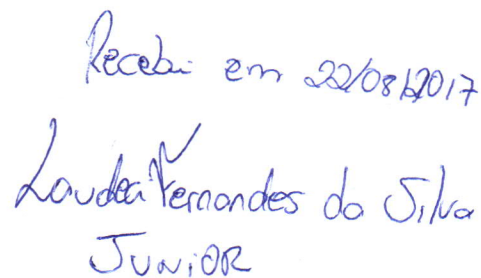 Recebi em 22/08/2017
Laudeci Fernandes da Silva
JUNIOR